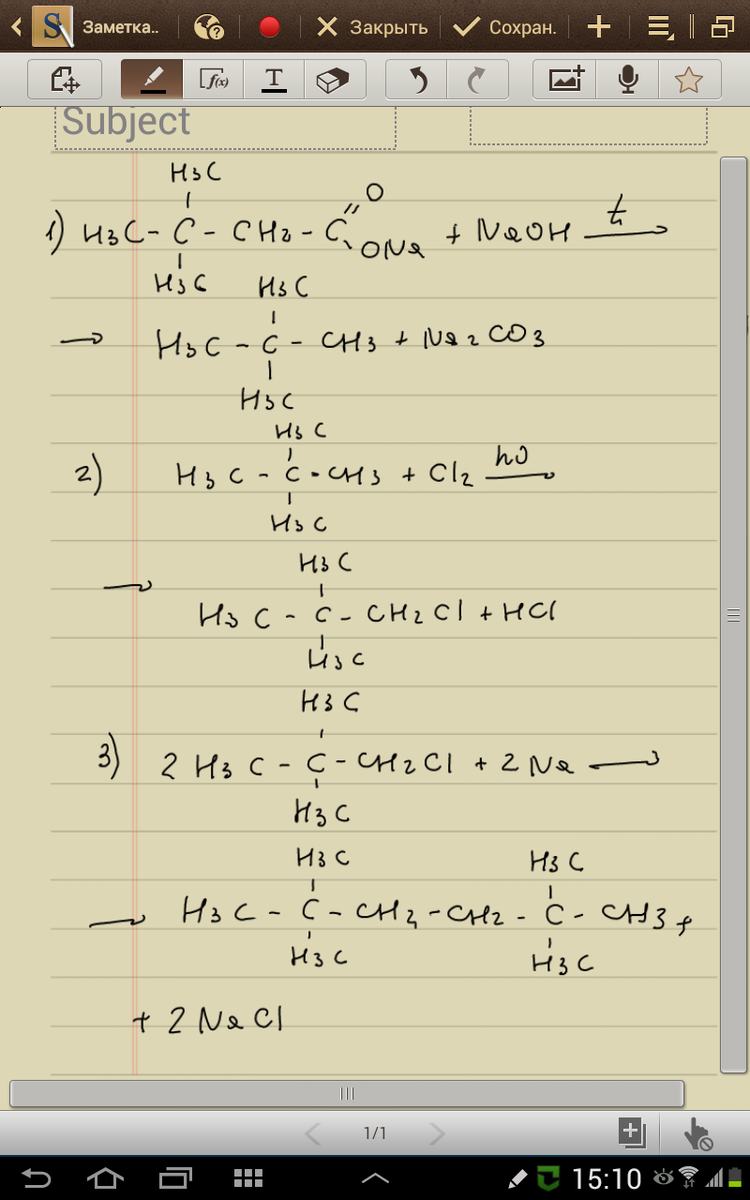 Заметка..
Закрыть
Сохран.
f(x)
T
Subject
H3C
1) H3C - C - CH2 - C
O
ONa
+ NaOH
t
H3C
H3C
→ H3C - C - CH3 + Na2CO3
H3C
H3C
2) H3C - C - CH3 + Cl2
hν
H3C
H3C
→ H3C - C - CH2Cl + HCl
H3C
H3C
3) 2 H3C - C - CH2Cl + 2Na →
H3C
H3C H3C
→ H3C - C - CH2 - CH2 - C - CH3 +
H3C H3C
+ 2NaCl
1/1
15:10